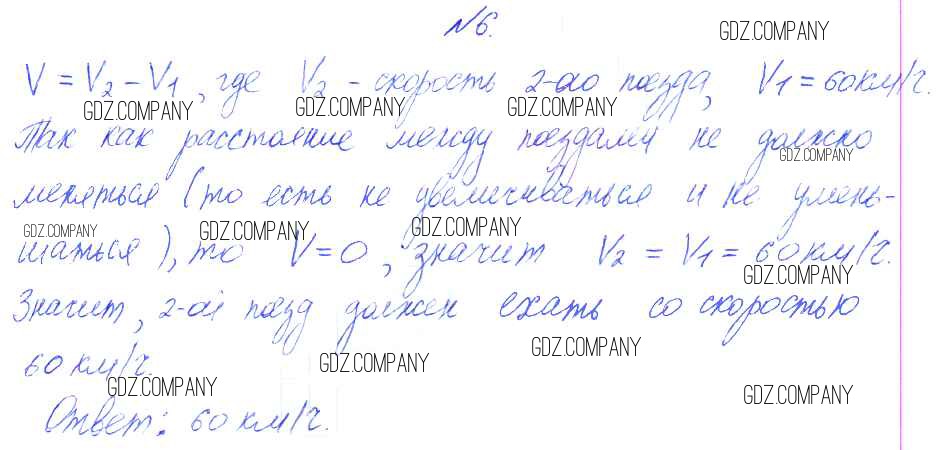 №6.
GDZ.COMPANY
V = V2 - V1, где V2 - скорость 2-ого поезда, V1 = 60 км/ч.
GDZ.COMPANY GDZ.COMPANY GDZ.COMPANY
Так как расстояние между поездами не должно
GDZ.COMPANY
меняться (то есть не увеличиваться и не умень-
GDZ.COMPANY GDZ.COMPANY GDZ.COMPANY
шаться), то V=0, значит V2 = V1 = 60 км/ч.
GDZ.COMPANY
Значит, 2-ой поезд должен ехать со скоростью
GDZ.COMPANY GDZ.COMPANY
60 км/ч.
GDZ.COMPANY GDZ.COMPANY
Ответ: 60 км/ч.